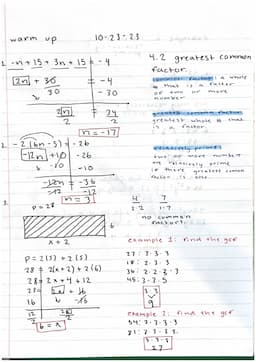 warm up
10-23-23
1. -n + 15 + 3n + 15 = -4
2n + 30 = -4
30 -30
2
n = -17
2. -2(6n - 5) = -26
-12n + 10 = -26
-10 -10
-12n = -36
n = 3
3. P = 28
6
x + 2
P = 2(s) + 2(s)
28 = 2(x+2) + 2(6)
28 = 2x + 4 + 12
16
6 = x
4.2 greatest common
factor.
common factor: a whole
# that is a factor
of two or more
number
greatest common factor:
greatest whole # that
is a factor
relatively prime:
two or more number
are relatively prime
if there greatest common
factor is one.
4 7
2·2 1·7
no common
factor!
example 1: find the gcf
27: 3·3·3
18: 2·3·3
36: 2·2·3·3
45: 3·3·5
3·3
9
example 2: find the gcf
54: 2·3·3·3
81: 3·3·3·3
3·3·3
27